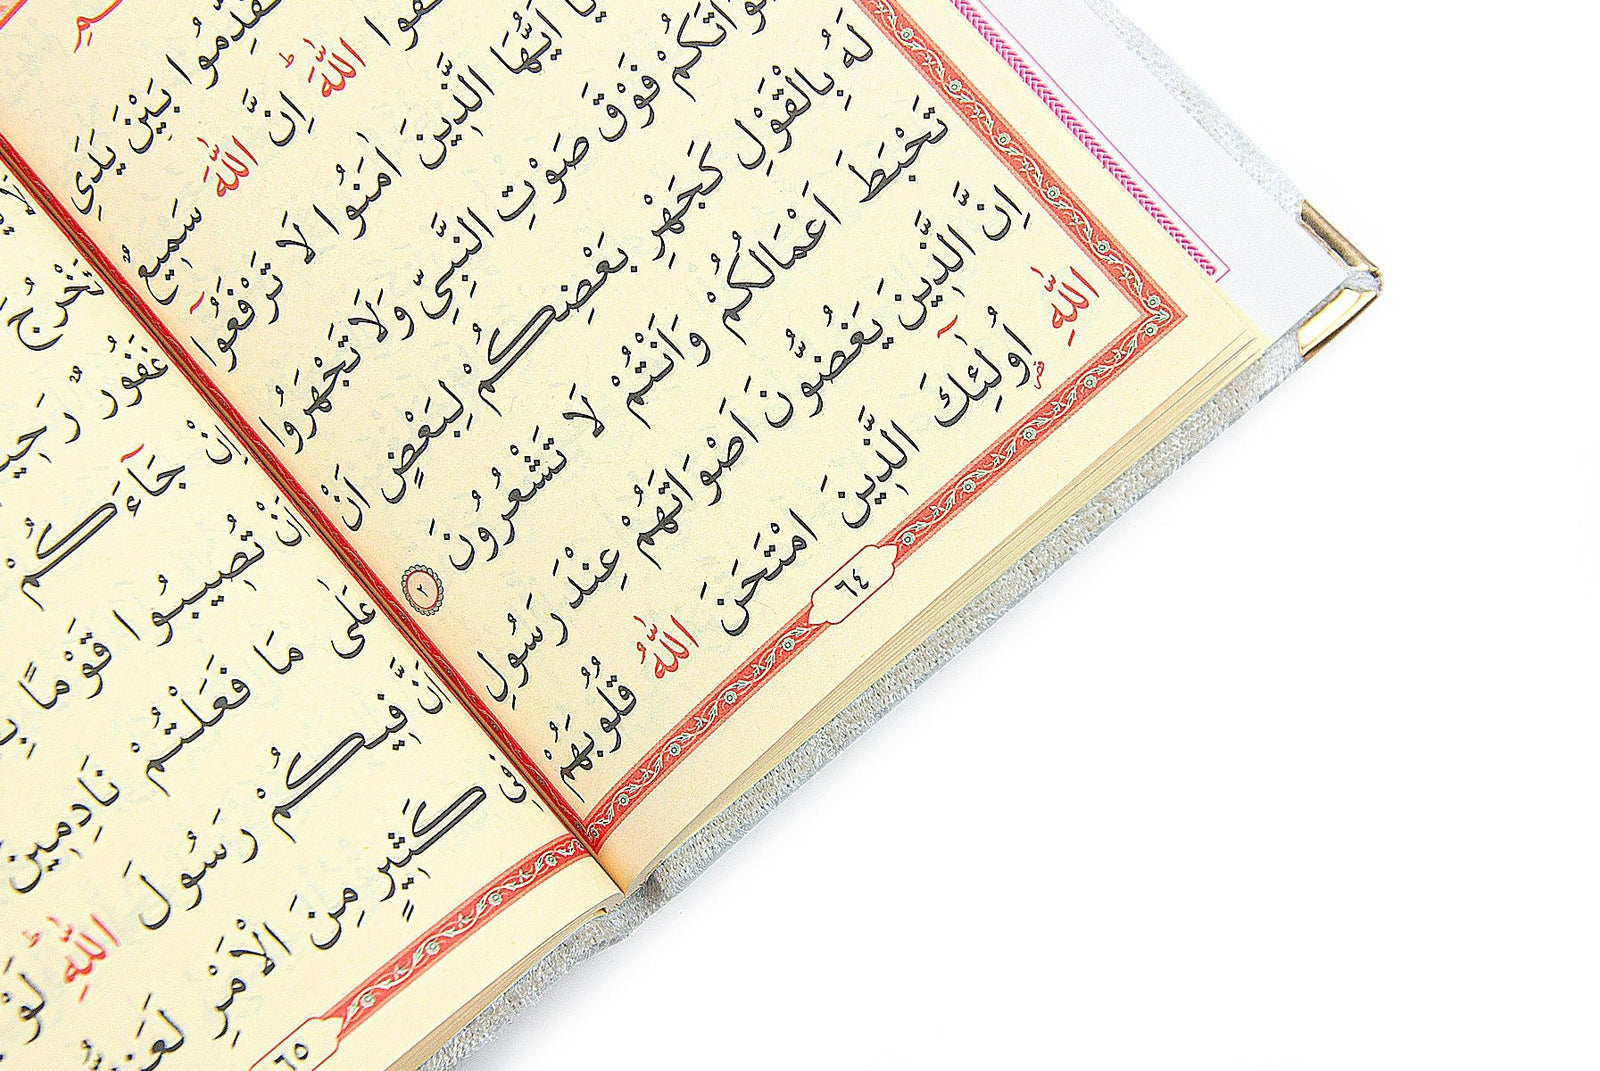 تُقَدِّمُوا بَيْنَ يَدَيِ
اللّٰهَ اِنَّ اللّٰهَ سَمِيعٌ
يَا اَيُّهَا الَّذِينَ اٰمَنُوا لَا تَرْفَعُٓوا
فَوْقَ صَوْتِ النَّبِيِّ وَلَا تَجْهَرُوا
لَهُ بِالْقَوْلِ كَجَهْرِ بَعْضِكُمْ لِبَعْضٍ اَنْ
تَحْبَطَ اَعْمَالُكُمْ وَاَنْتُمْ لَا تَشْعُرُونَ ٢
اِنَّ الَّذِينَ يَغُضُّونَ اَصْوَاتَهُمْ عِنْدَ رَسُولِ
اللّٰهِ اُولٰٓئِكَ الَّذِينَ امْتَحَنَ اللّٰهُ قُلُوبَهُمْ
٦٤
غَفُورٌ رَحِيمٌ
اِنْ جَٓاءَكُمْ
اَنْ تُصِيبُوا قَوْمًا
عَلٰى مَا فَعَلْتُمْ نَادِمِينَ
اَنَّ فِيكُمْ رَسُولَ اللّٰهِ لَوْ
فِي كَثِيرٍ مِنَ الْاَمْرِ
٦٥